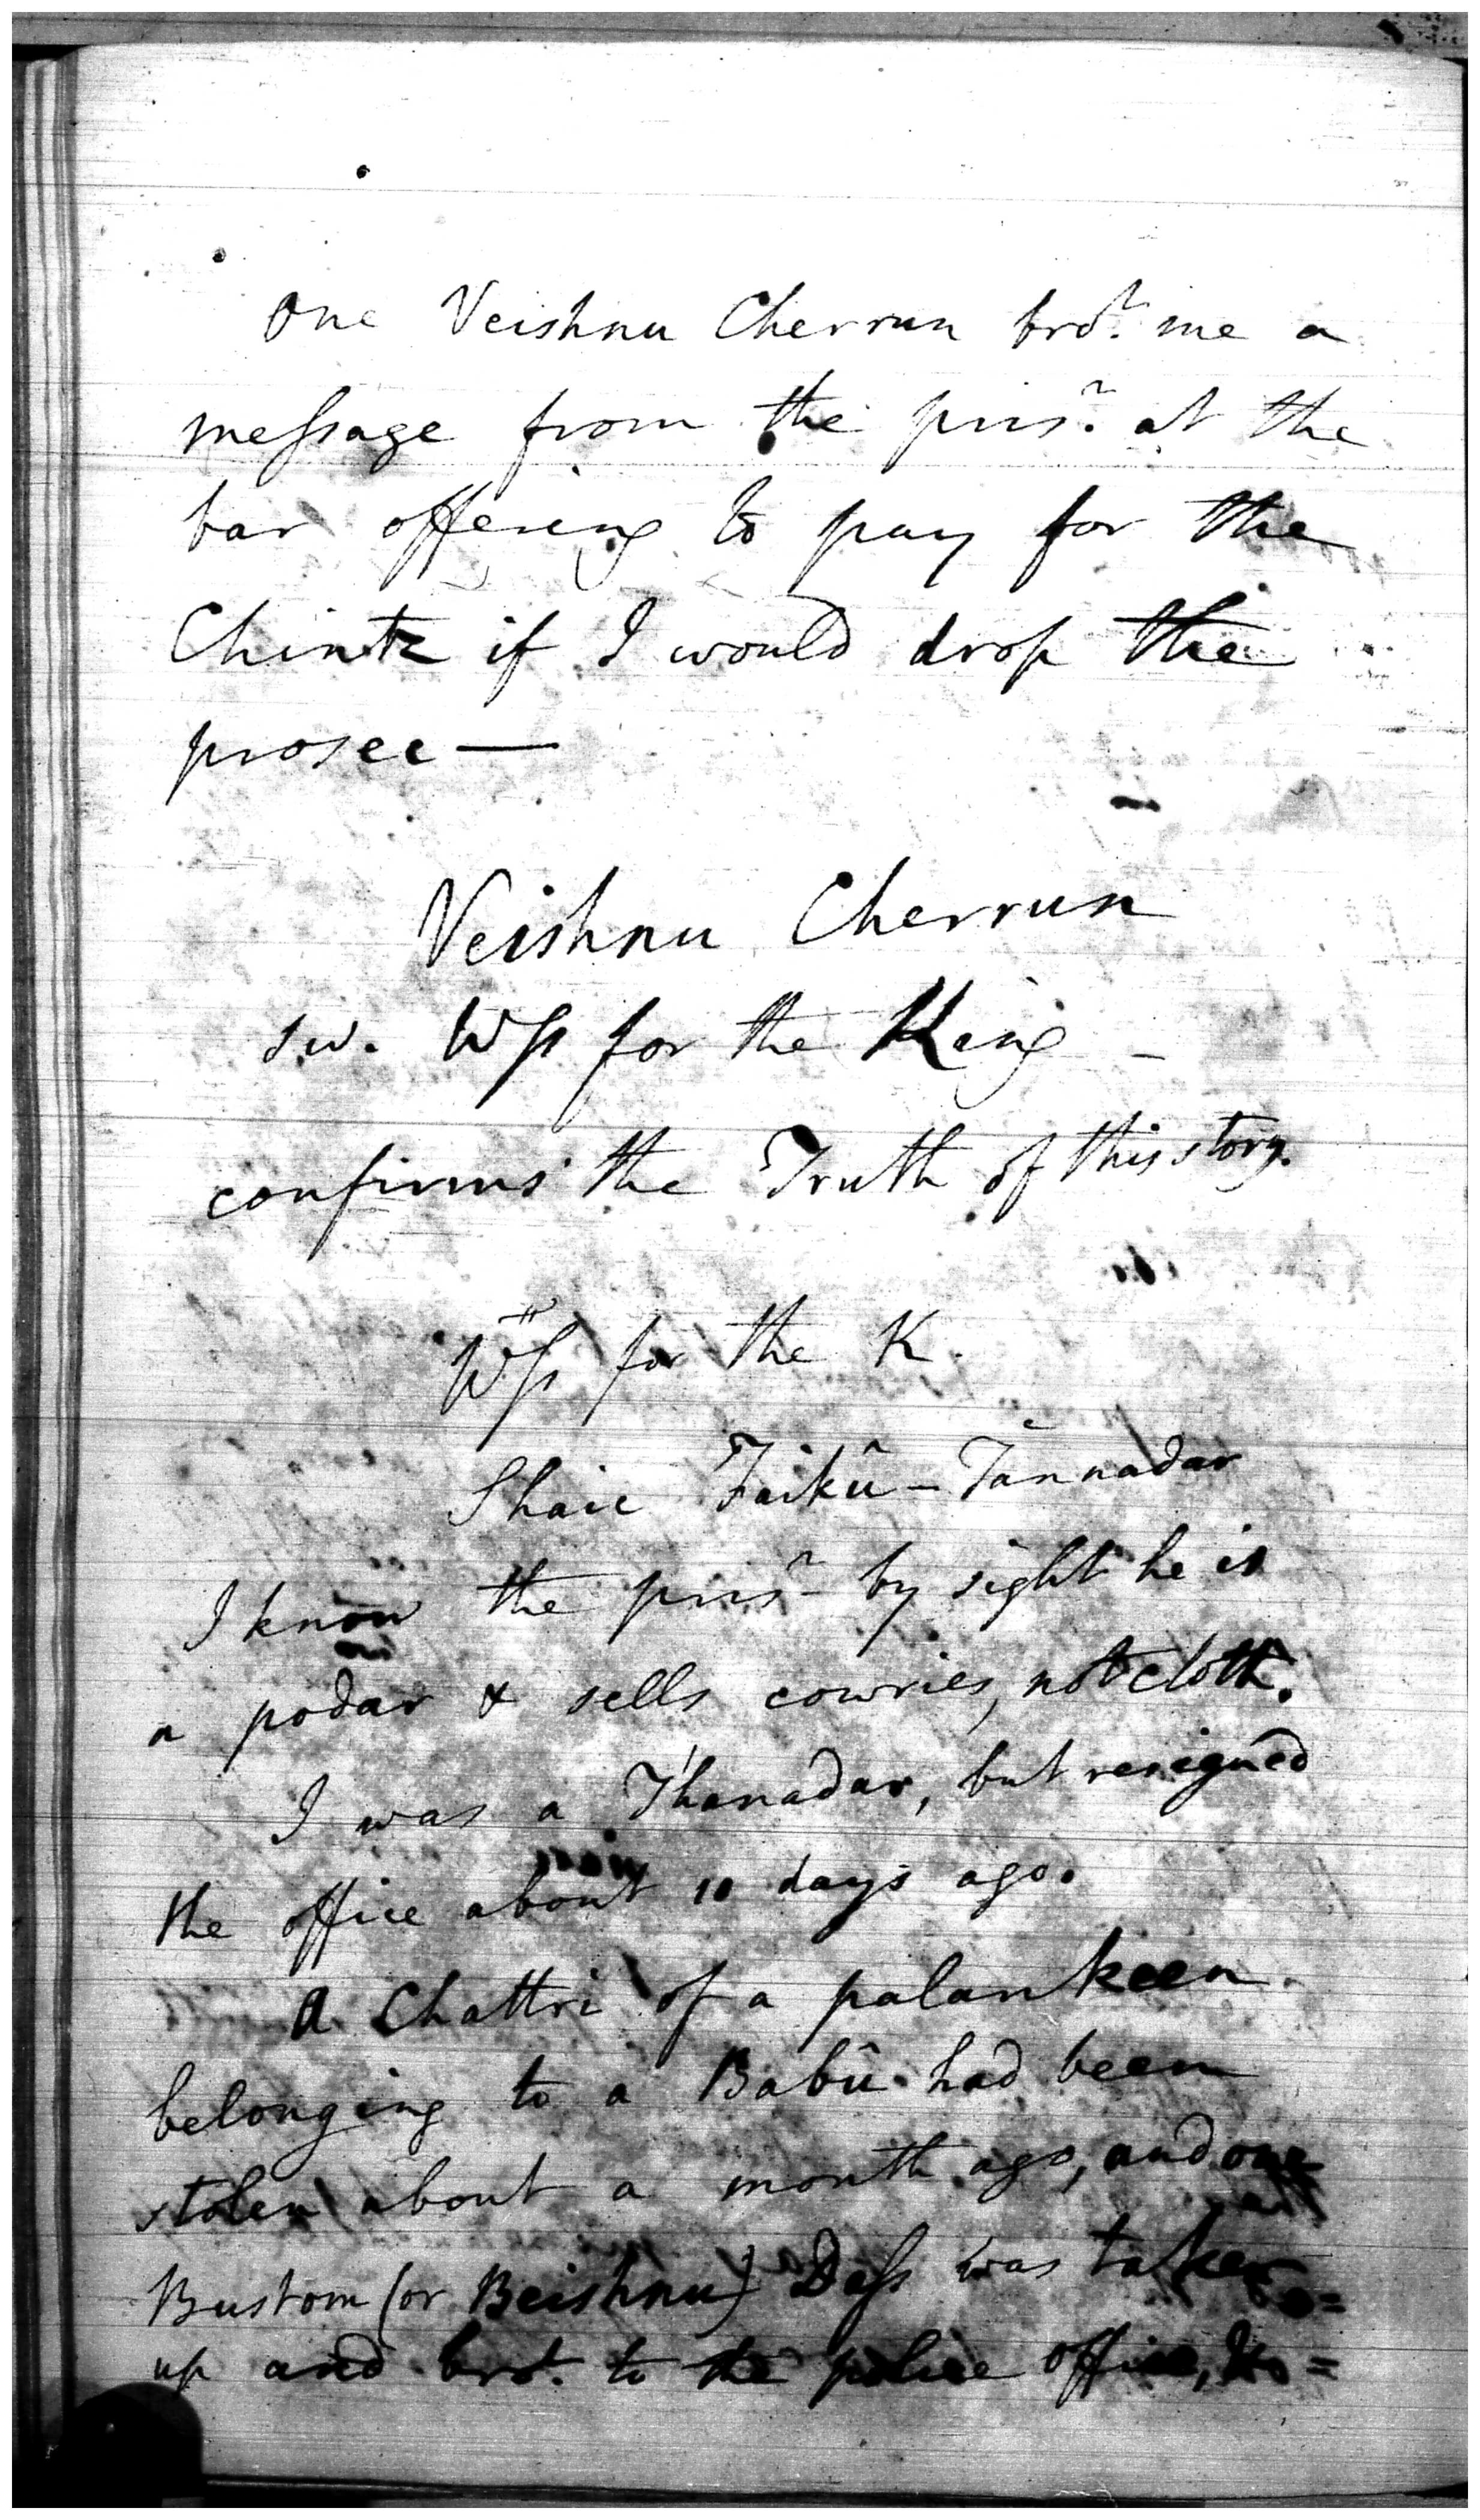 One Veishnu Cherrun bro.t me a
message from the pris.r at the
bar offering to pay for the
Chintz if I would drop the
prosec—
Veishnu Cherrun
sw. Wss for the King –
confirms the Truth of this story.
Wss for the K.
Shaic Faikû – Tánnadar
I know the pris.r by sight he is
a podar & sells cowries, not cloth.
I was a Thanadar, but resigned
the office about 10 days ago.
A Chattri of a palankeen
belonging to a Babû had been
stolen about a month ago, and one
Bustom (or Beishnu) Dass was taken
up and bro.t to the police office,